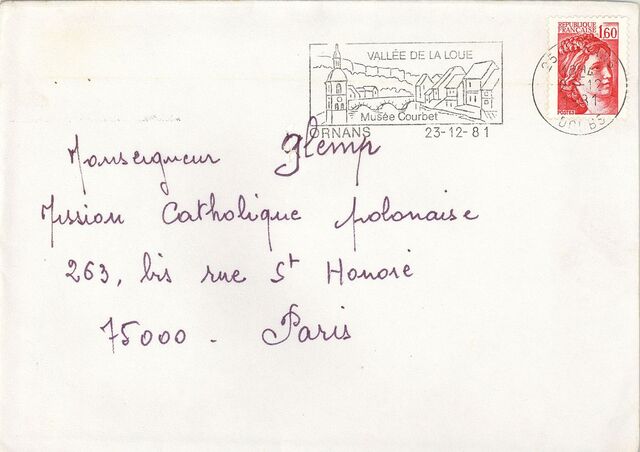 RÉPUBLIQUE
FRANÇAISE 1,60
POSTES
VALLÉE DE LA LOUE
Musée Courbet
ORNANS 23-12-81
25
DOUBS
Monseigneur Glemp
Mission Catholique polonaise
263, bis rue St Honoré
75000. Paris